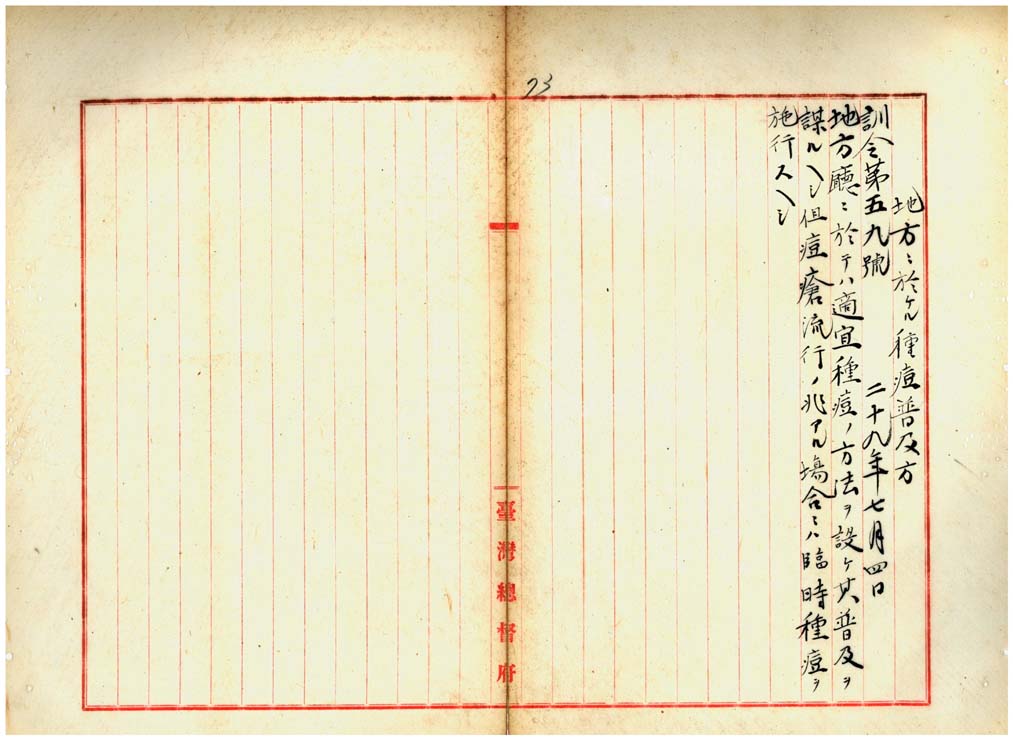 73
地方ニ於ケル種痘普及方
訓令第五九號　二十九年七月四日
地方廳ニ於テハ適宜種痘ノ方法ヲ設ケ其普及ヲ
謀ルヘシ但痘瘡流行ノ兆アル場合ニハ臨時種痘ヲ
施行スヘシ
臺灣總督府